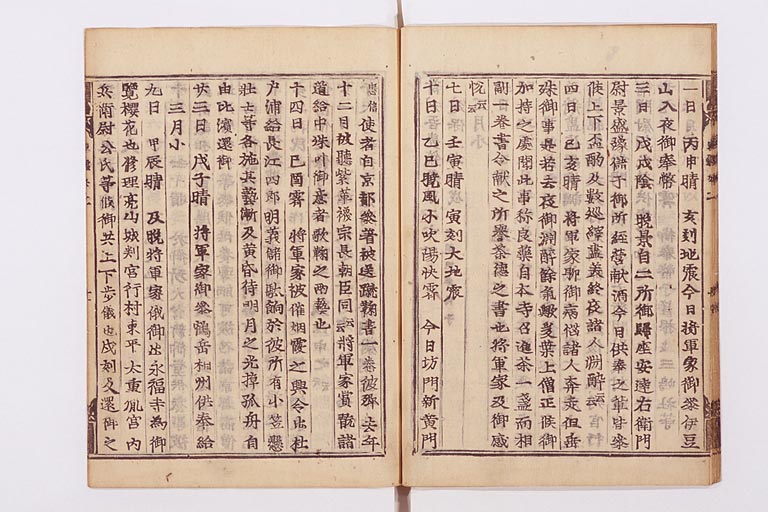 一日　丙申晴　亥刻地震今日将軍家御參伊豆
山入夜御奉幣云云
三日　戊戌陰　晩景自二所御歸座安達右衛門
尉景盛豫儲于御所經營献酒今日供奉之輩皆參
候上下盃酌及数巡繹盡美終夜諸人淵醉云云
四日　己亥晴　將軍家聊御病悩諸人奔走但無
殊御事是若去夜御淵醉餘氣歟爰葉上僧正候御
加持之處聞此事称良藥自本寺召進茶一盞而相
副一巻書令献之所譽茶德之書也將軍家及御感
悦云云
七日　壬寅晴　寅刻大地震
十日　乙巳暁風小吹陽快霽　今日坊門新黄門
忠信使者自京都參着被送蹴鞠書一巻彼卿去年
十二月被聽紫革襪宗長朝臣同云云将軍家賞翫諸
道給中殊叶御意者歌鞠之両藝也
十四日　己酉霽　將軍家被催烟霞之興令出杜
戸浦給長江四郎明義儲御駄餉於彼所有小笠懸
壮士等各施其藝漸及黄昏待明月之光棹孤舟自
由比濱還御
廿三日　戊子晴　将軍家御參鶴岳相州供奉給
三月小
九日　甲辰晴　及晩將軍家俄御出永福寺為御
覽櫻花也修理亮山城判官行村東平太重胤宮内
兵衛尉公氏等候御共上下歩儀也戌刻及還御之